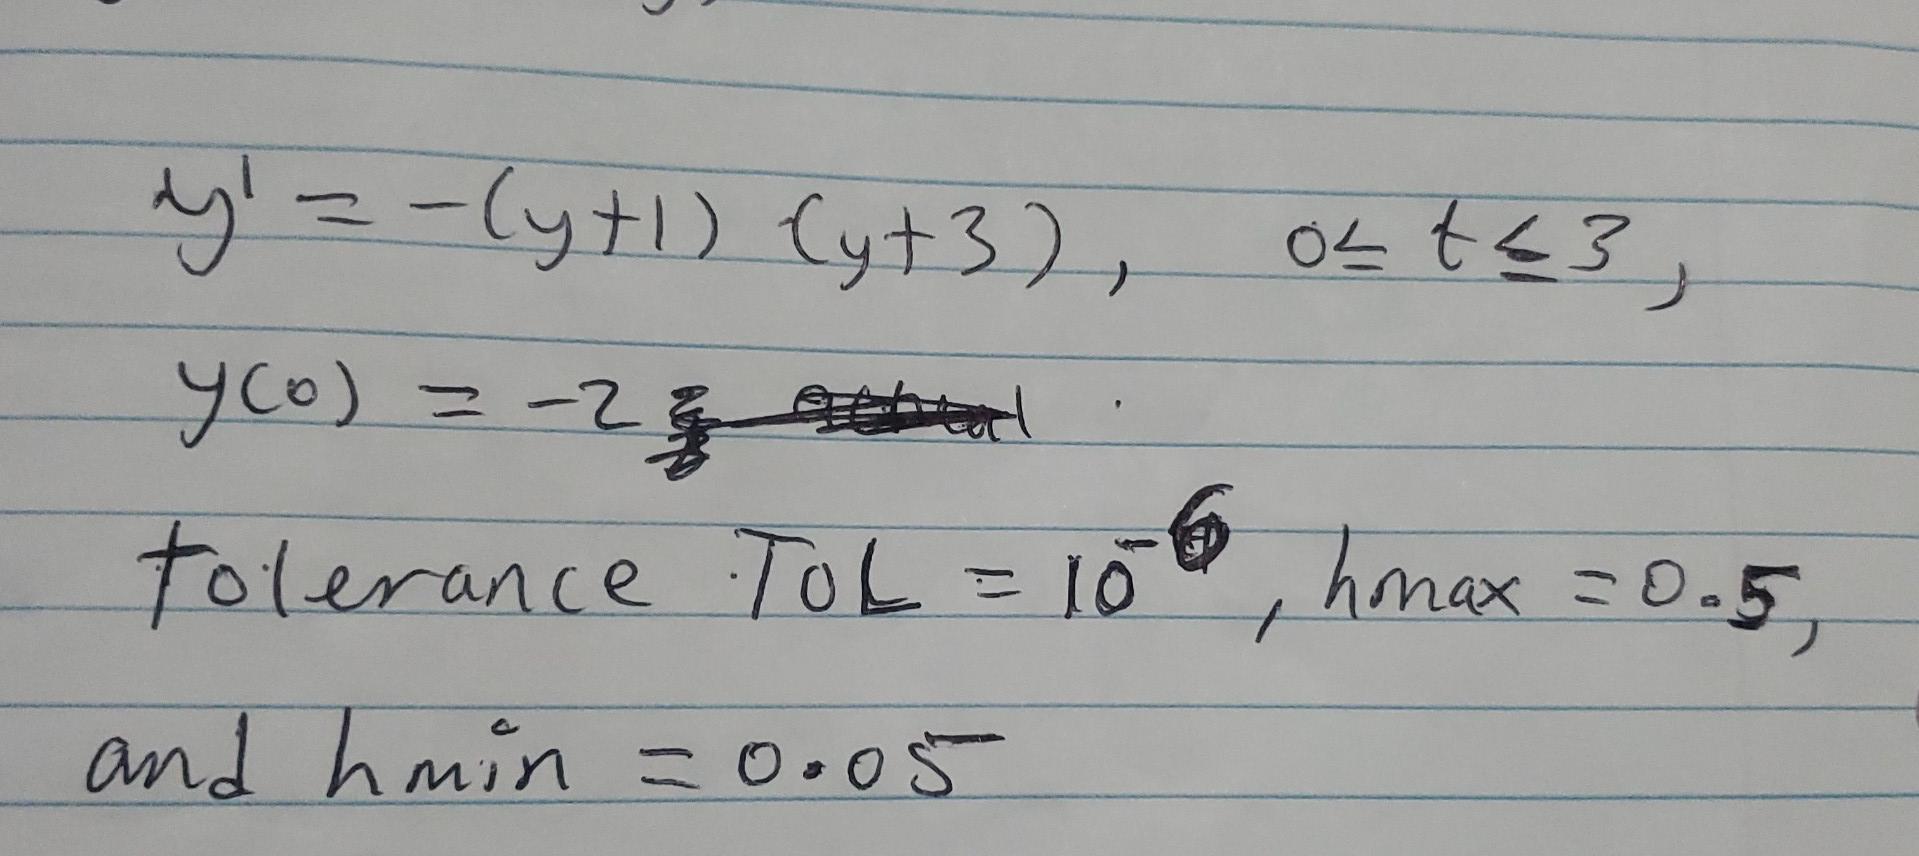 y' = -(y+1) (y+3), 0≤ t ≤ 3,
y(0) = -2
tolerance TOL = 10^-6, hmax = 0.5,
and hmin = 0.05